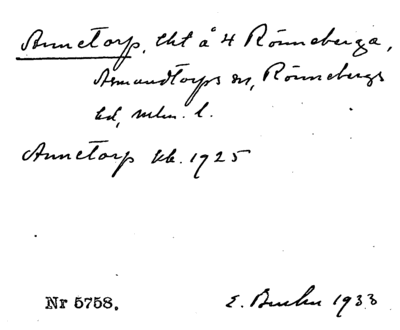 Annetorp, tht å 4 Rönneberga,
Asmundtorps sn, Rönnebergs
hd, mlm. l.
Annetorp kk. 1925
Nr 5758. E. 1933